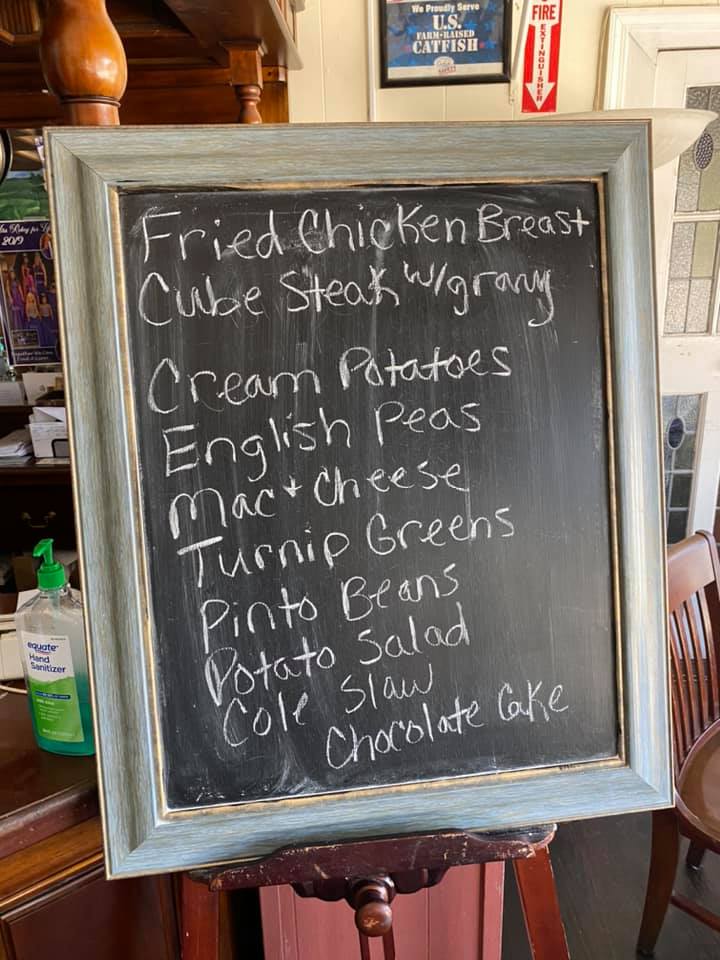 We Proudly Serve
U.S.
FARM-RAISED
CATFISH
FIRE
EXTINGUISHER
2019
Fried Chicken Breast
Cube Steak w/gravy
Cream Potatoes
English Peas
Mac + Cheese
Turnip Greens
Pinto Beans
Potato Salad
Cole Slaw
Chocolate Cake
equate
Hand
Sanitizer